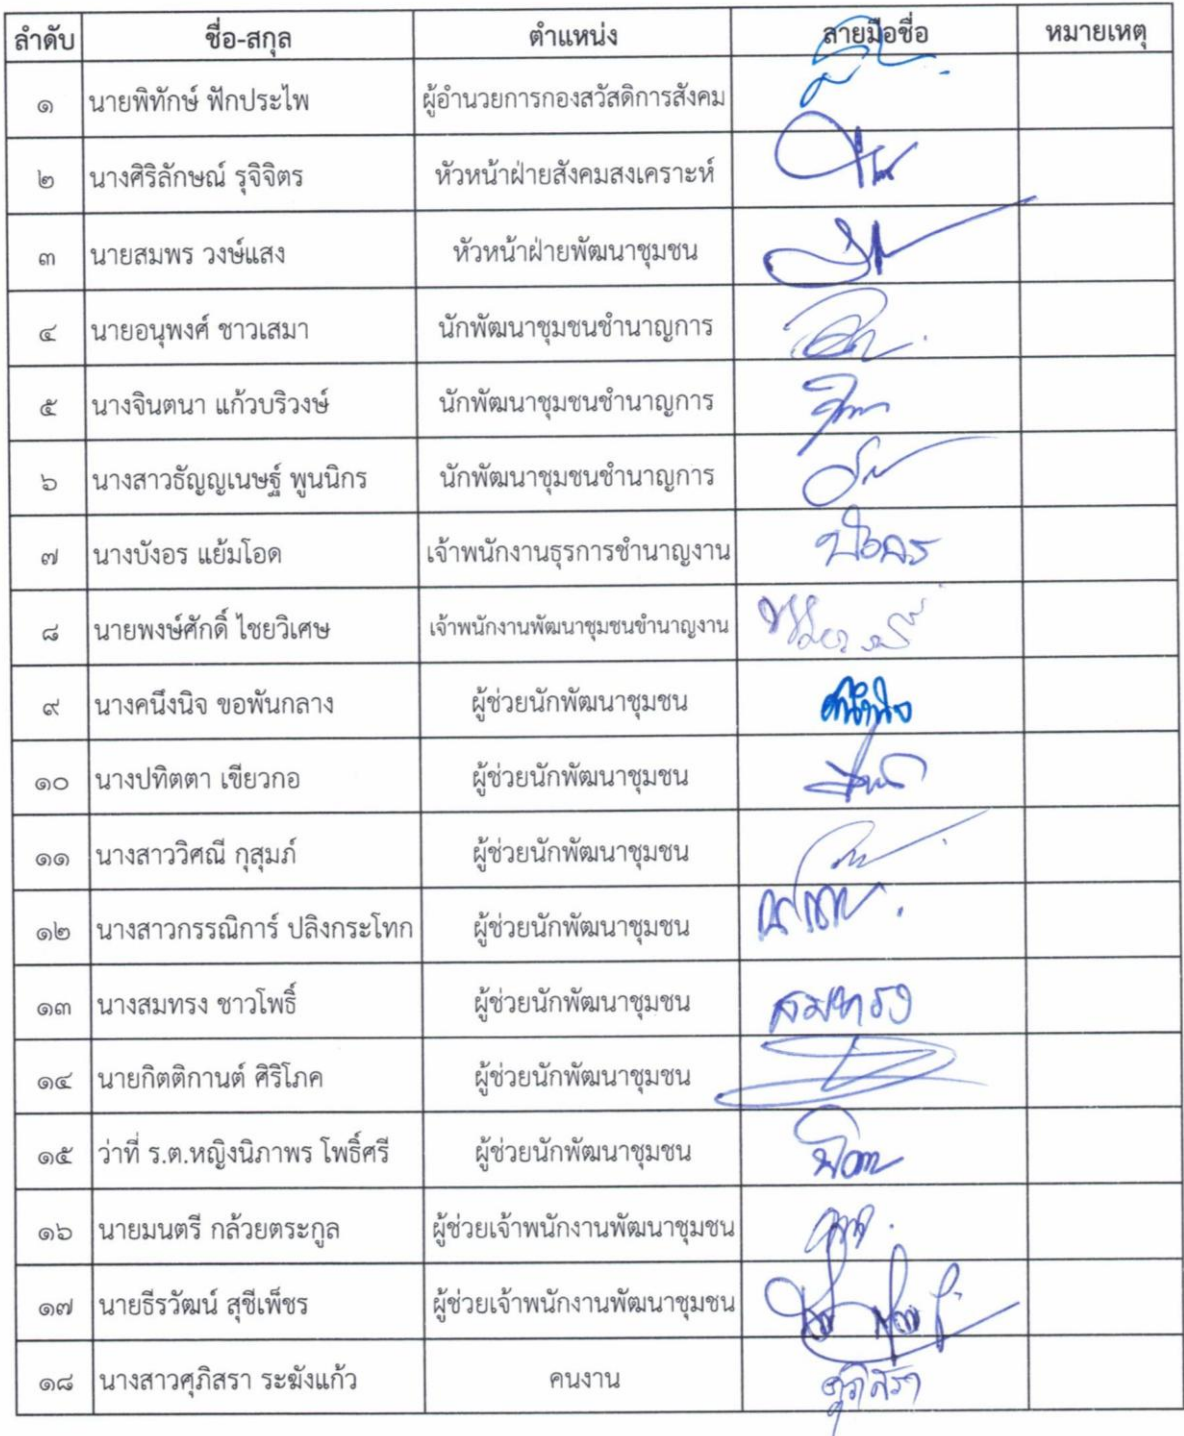 ลำดับ ชื่อ-สกุล ตำแหน่ง ลายมือชื่อ หมายเหตุ
๑ นายพิทักษ์ ฟักประไพ ผู้อำนวยการกองสวัสดิการสังคม
๒ นางศิริลักษณ์ รุจิจิตร หัวหน้าฝ่ายสังคมสงเคราะห์
๓ นายสมพร วงษ์แสง หัวหน้าฝ่ายพัฒนาชุมชน
๔ นายอนุพงศ์ ชาวเสมา นักพัฒนาชุมชนชำนาญการ
๕ นางจินตนา แก้วบริวงษ์ นักพัฒนาชุมชนชำนาญการ
๖ นางสาวธัญญเนษฐ์ พูนนิกร นักพัฒนาชุมชนชำนาญการ
๗ นางบังอร แย้มโอด เจ้าพนักงานธุรการชำนาญงาน บังอร
๘ นายพงษ์ศักดิ์ ไชยวิเศษ เจ้าพนักงานพัฒนาชุมชนชำนาญงาน
๙ นางคนึงนิจ ขอพันกลาง ผู้ช่วยนักพัฒนาชุมชน คนึงนิจ
๑๐ นางปทิตตา เขียวกอ ผู้ช่วยนักพัฒนาชุมชน
๑๑ นางสาววิศณี กุสุมภ์ ผู้ช่วยนักพัฒนาชุมชน
๑๒ นางสาวกรรณิการ์ ปลิงกระโทก ผู้ช่วยนักพัฒนาชุมชน
๑๓ นางสมทรง ชาวโพธิ์ ผู้ช่วยนักพัฒนาชุมชน สมทรง
๑๔ นายกิตติกานต์ ศิริโภค ผู้ช่วยนักพัฒนาชุมชน
๑๕ ว่าที่ ร.ต.หญิงนิภาพร โพธิ์ศรี ผู้ช่วยนักพัฒนาชุมชน
๑๖ นายมนตรี กล้วยตระกูล ผู้ช่วยเจ้าพนักงานพัฒนาชุมชน
๑๗ นายธีรวัฒน์ สุชีเพ็ชร ผู้ช่วยเจ้าพนักงานพัฒนาชุมชน
๑๘ นางสาวศุภิสรา ระฆังแก้ว คนงาน ศุภิสรา